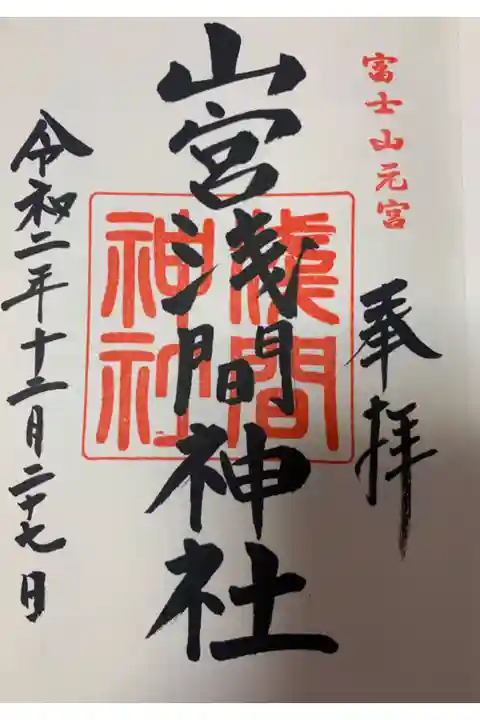 富士山元宮
奉拝
山宮浅間神社
浅間
神社
令和二年十二月二十七日